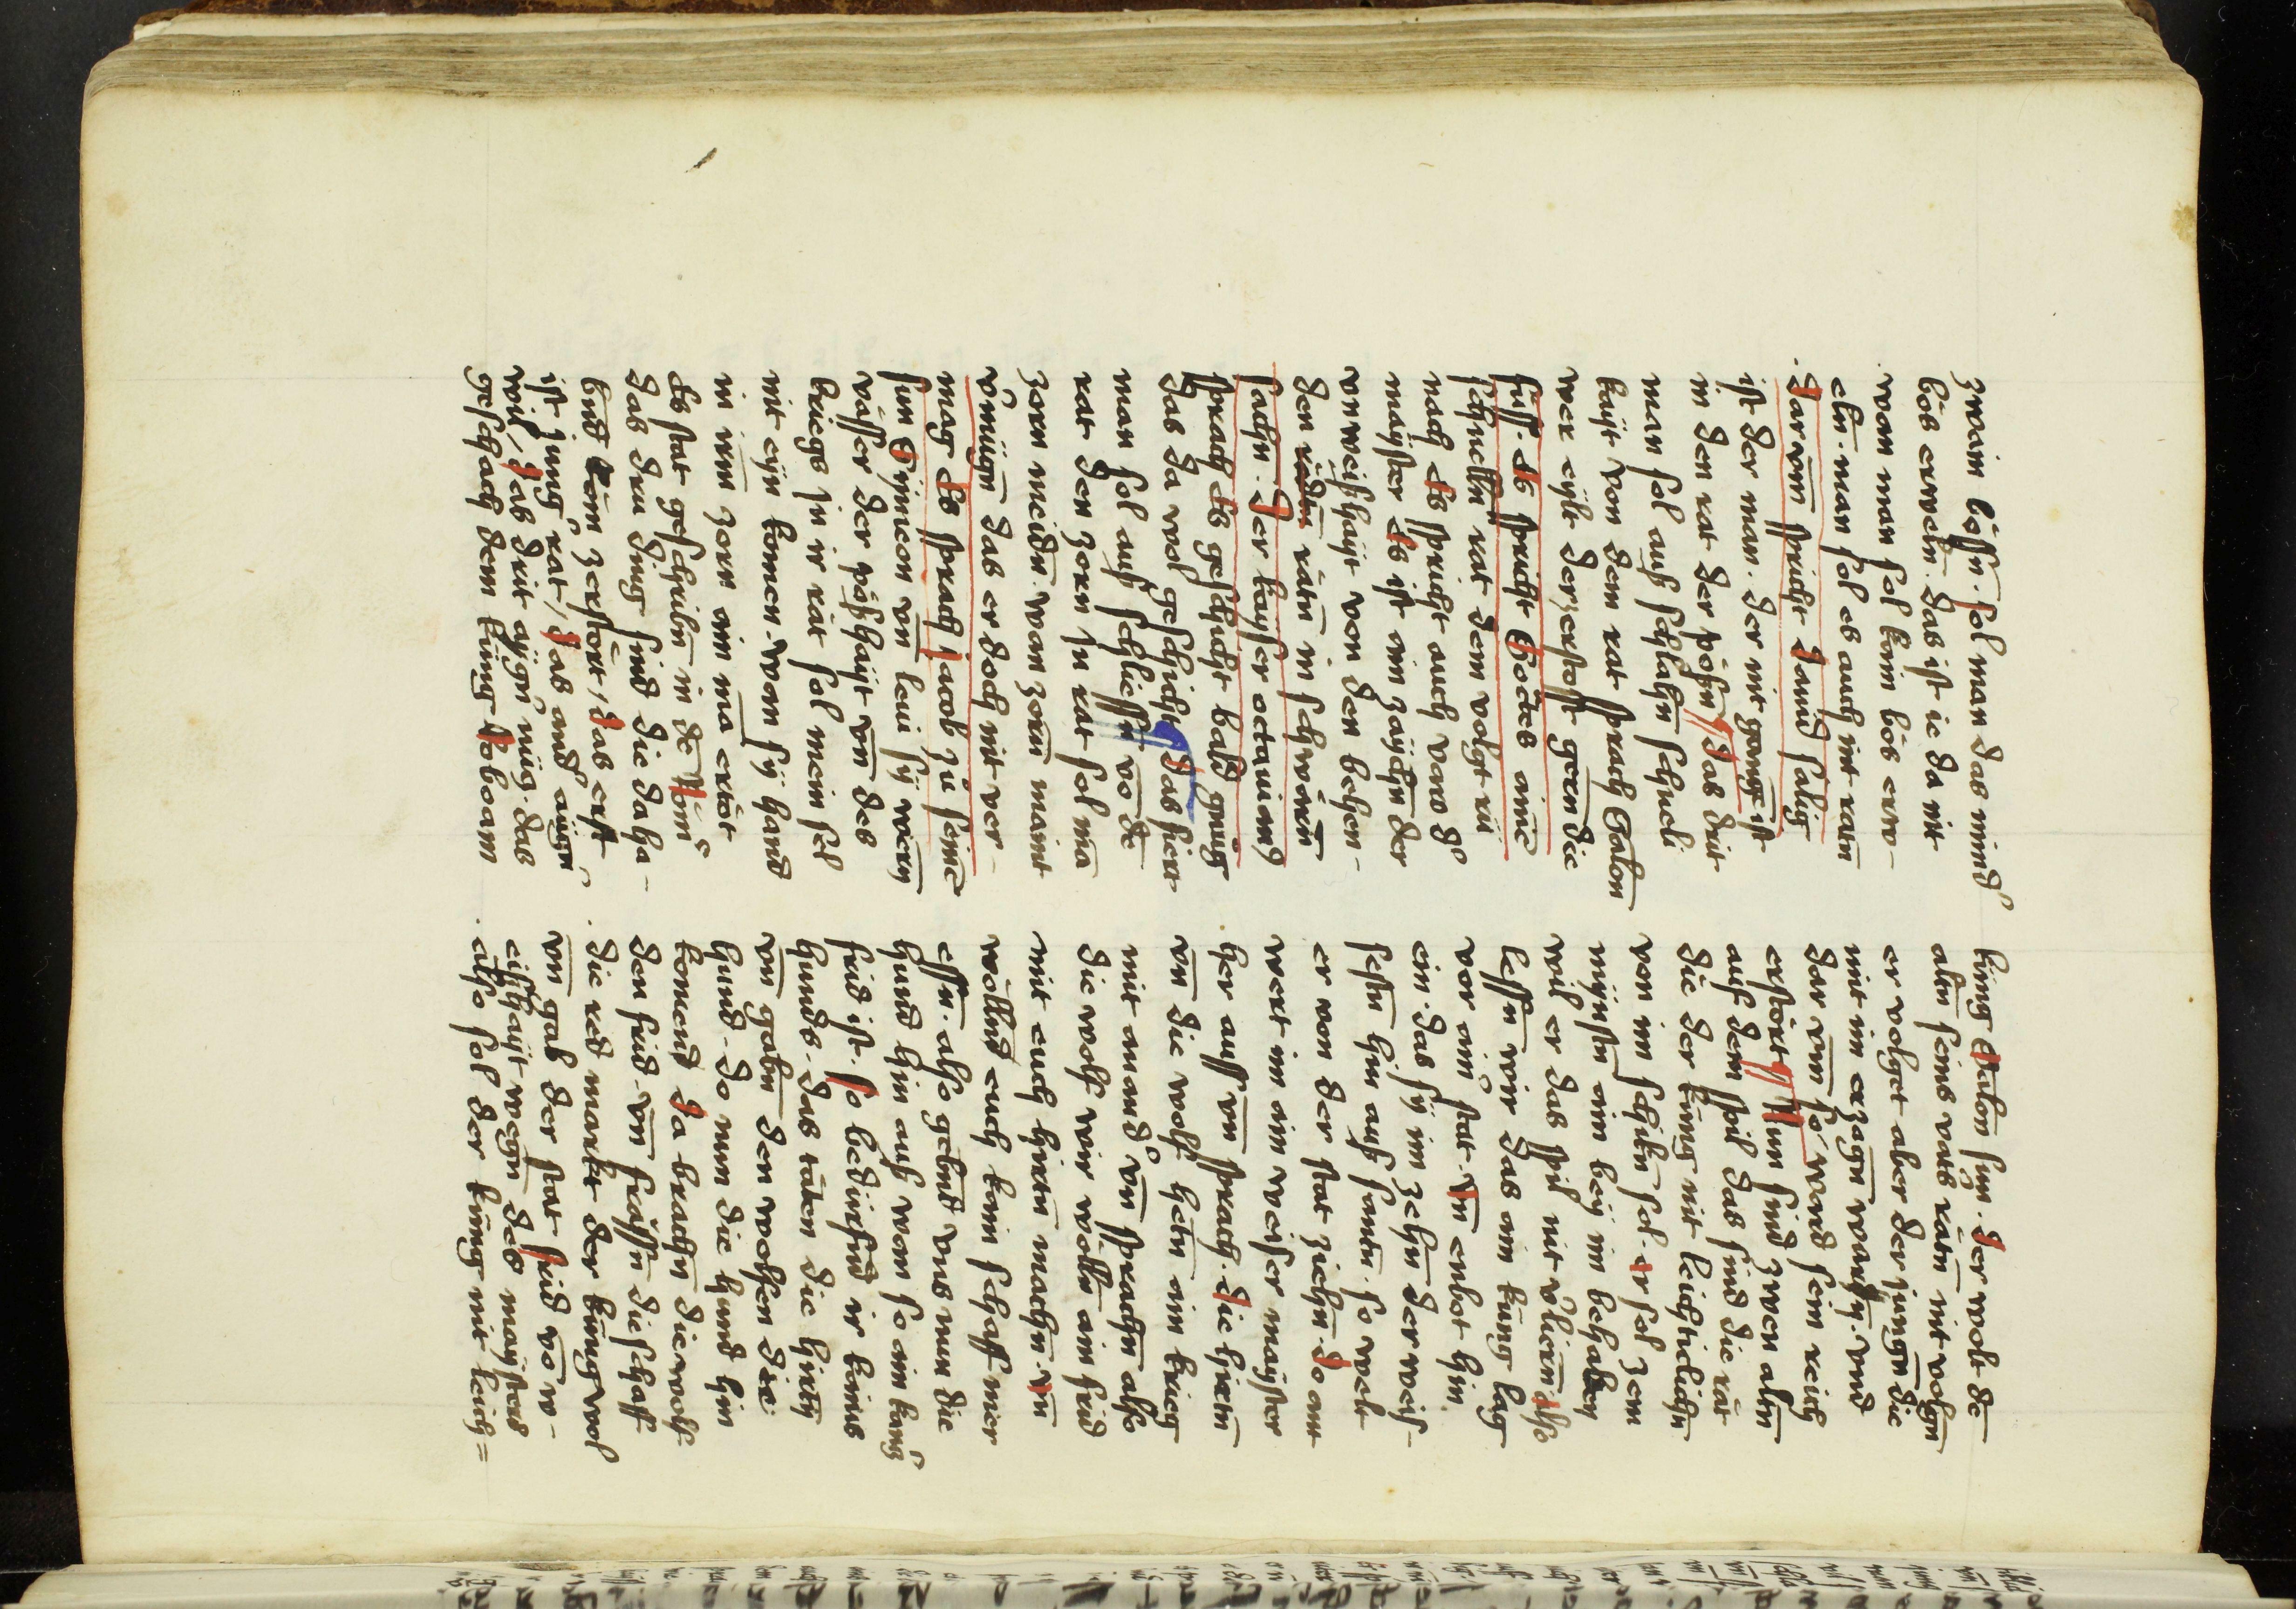 zwain bösn̄. sol man das mind͛
bös erweln̄. das ist ie da nit
wan man sol kain bös erw-
eln̄. man sol es auch nit ratn̄
.Darum̄ spricht dauid sälig
ist der man. der nit gange̅ ist
in den rat der pösn̄ Das drit
man sol auß schlahn̄ schneli
kaÿt von dem rat sprach Salon̄
wer eÿlt der zerstost geren die
füss. Es spricht Socrates aine̅
schnelln̄ rat dem volgt rü
nach Es spricht auch varo d͛
maÿster Es ist ain zaÿchn̄ der
vnweißhaÿt von den behen-
den rätn̄ in schwärn̄
sachn̄. Der kaÿser octauianꝯ
sprach es geschicht bald gnüg
das da wol geschicht Das fiert
man sol auß schliessn̄ vō dē
rat Den zorn jn rat sol mā
zorn meidn̄. wan zorn̄ maint
v͛mügn̄ das er doch nit ver-
mag Es sprach jacob zů seine̅
sun Sÿmeon vn̄ leui sÿ wärn̄
vässer der pößhaÿt vn̄ des
kriegs jn ir rät sol mein sel
nit eÿn komen. wan sÿ hand
in irm̄ zorn ain ma ertöt
Es stat geschribn̄ in dē Rom̄
Das dru ding sind die da ha-
bnd Rom̄ zerstört, Das erst
ist jung͛ rat, Das and͛ aÿgn͛
wil, Das drit aÿgn͛ nüg. das
geschach dem küng Roboam
küng Salon̄ sun̄. Der wolt dē
altn̄ seins vats rätn̄ nit volgn̄
er volget aber der jungn̄ die
mit im erzogn̄ warn̄. vnd
dar vm̄ so ward sein reich
erstört Nun sind zwen altn̄
auf dem spil das sind die rät
Die der küng nit leichtiklichn̄
von im schikn̄ sol er sol zem
minstn̄ ain beÿ im behaben
wil er das spil nit v͛liern̄. Also
lesn̄ wir das ain küng lag
vor ain͛ stat. Vn̄ enbot hin
ein. das sÿ im zehn̄ der weis-
estn̄ hin auß santn̄. so welt
er von der stat ziehn̄. Do ant
wert im ain weiser maÿster
her auss vn̄ sprach. Die hirtn̄
vn̄ die wolf hetn̄ ain krieg
mit anand͛ vn̄ sprachn̄ also
die wolf wir wölln̄ ain frid
mit euch hirtn̄ machn̄. Vn̄
wöllnd euch kain schaff mer
essn̄. also gebnd vns nun die
hund hin auß wan so ain kauf͛
frid ist. So bedürfnd ir kains
hunds. Das taten die hirtn̄
vn̄ gabn̄ den wolfen die
hund. Do nun die hund hin
komend Da brachn̄ die wolf
den frid. vn̄ frassn̄ die schaff
.Die red markt der küng wol
vn̄ gab der stat frid vō w-
eißhaÿt wegn̄ des maÿsters
.also sol der küng nit leich=